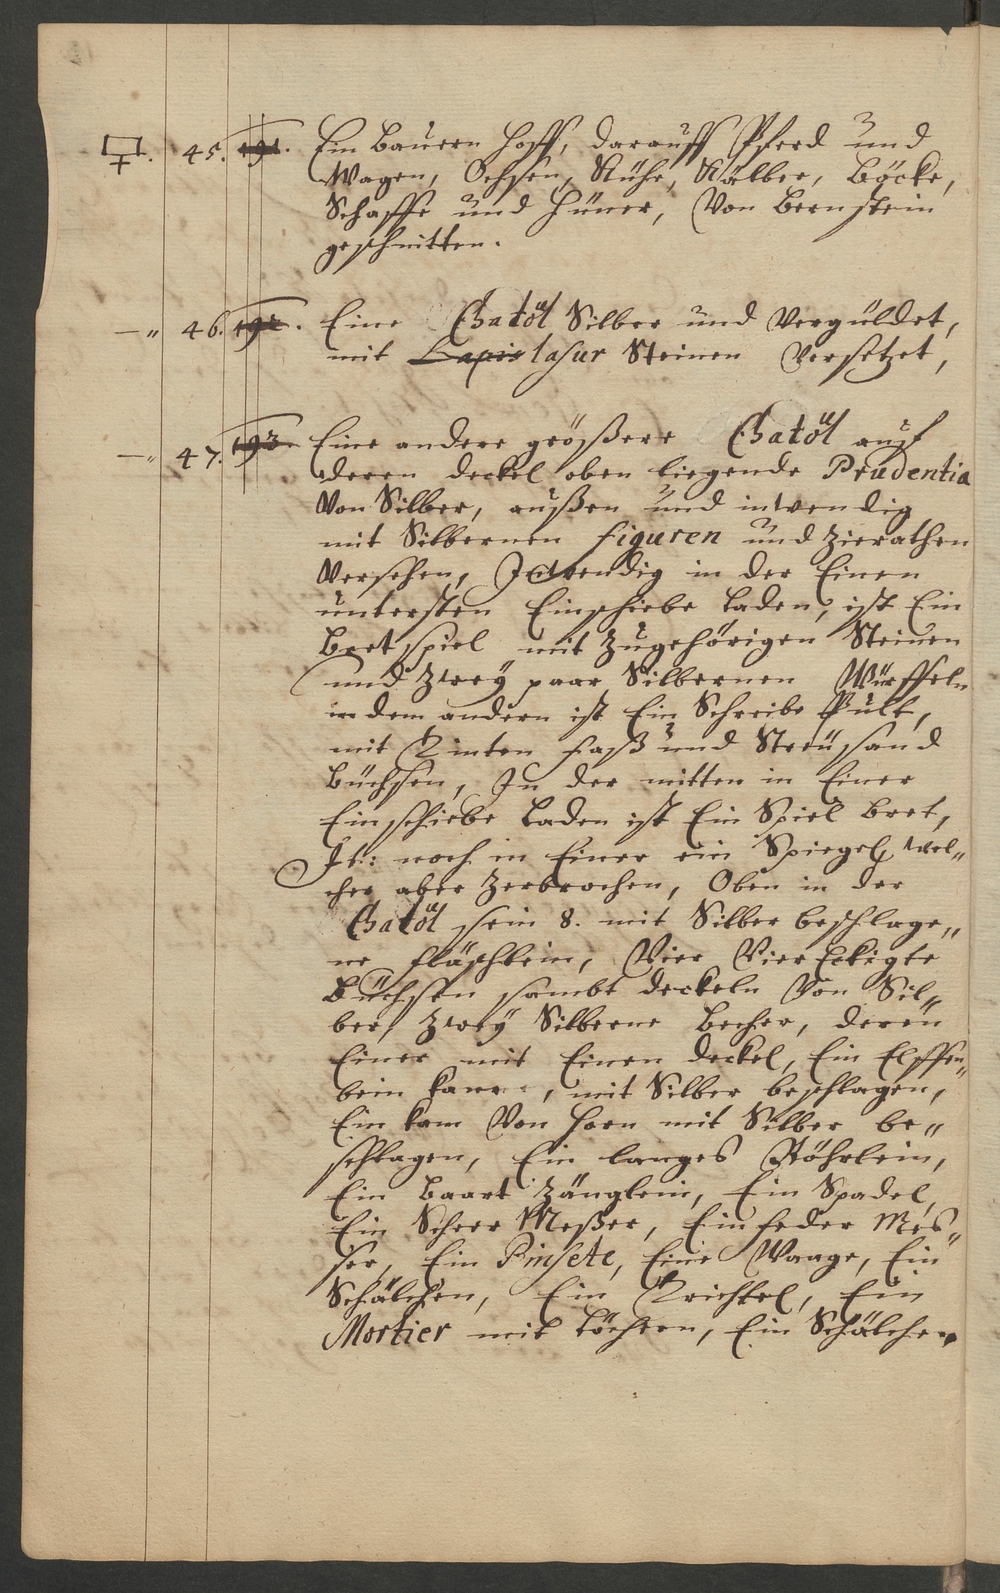 45. 191. Ein Bauern Hoff, darauff Pferd und
Wagen, Ochsen, Kühe, Kälber, Böcke,
Schaffe und Hüner, Von Bernstein
geschnitten.
—„ 46. 192. Eine Chatöl Silber und Vergüldet,
mit Lapis lasur Steinen Versetzet,
—„ 47. 193. Eine andere größere Chatöl auf
deren deckel oben liegende Prudentia
Von Silber, außen und inwendig
mit Silbernen figuren und Zierathen
Versehen, Inwendig in der Einen
untersten Einschiebe Laden, ist Ein
Bretspiel mit Zugehörigen Steinen
und Zweÿ paar Silbernen Würffeln
in dem andern ist Ein Schreibe Pult,
mit Dinten faß und Streüsand
Büchsen, In der mitten in Einer
Einschiebe Laden ist Ein Spiel bret,
It: noch in Einer ein Spiegel, wel„
cher aber Zerbrochen, Oben in der
Chatöl sein 8. mit Silber beschlage„
ne fläschlein, Vier Vier Eckigte
Büchsen sambt deckeln Von Sil„
ber, Zweÿ Silberne Becher, deren
Einer mit Einen deckel, Ein Elffen„
bein kam, mit Silber beschlagen,
Ein kam Von Horn mit Silber be„
schlagen, Ein langes Röhrlein,
Ein Baart Zänglein, Ein Spadel,
Ein Scheer Meßer, Ein feder Meß„
ser, Ein Pinsete, Eine Waage, Ein
Schälchen, Ein Trichtel, Ein
Mortier mit Löchern, Ein Schälchen